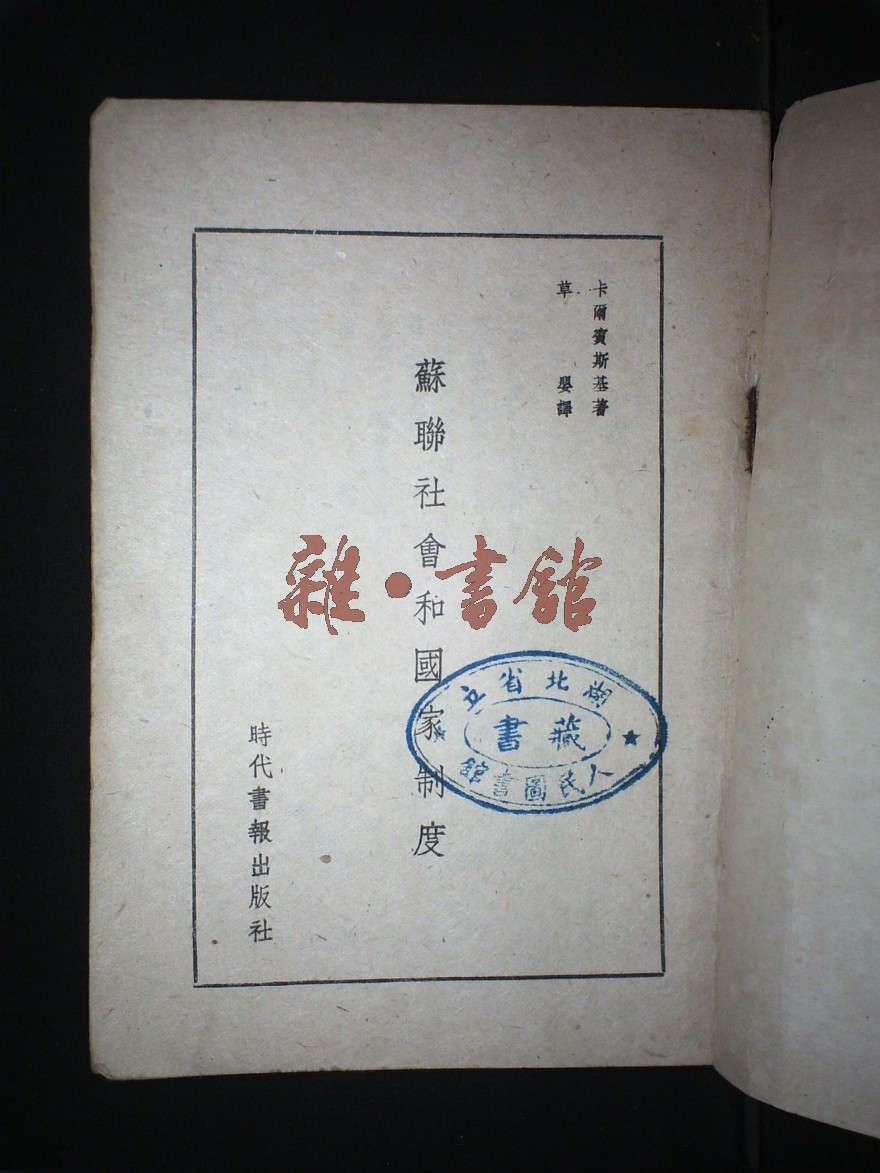 卡爾賓斯基著
草嬰譯
蘇聯社會和國家制度
時代書報出版社
雜·書館
湖北省立
藏書
人民圖書館